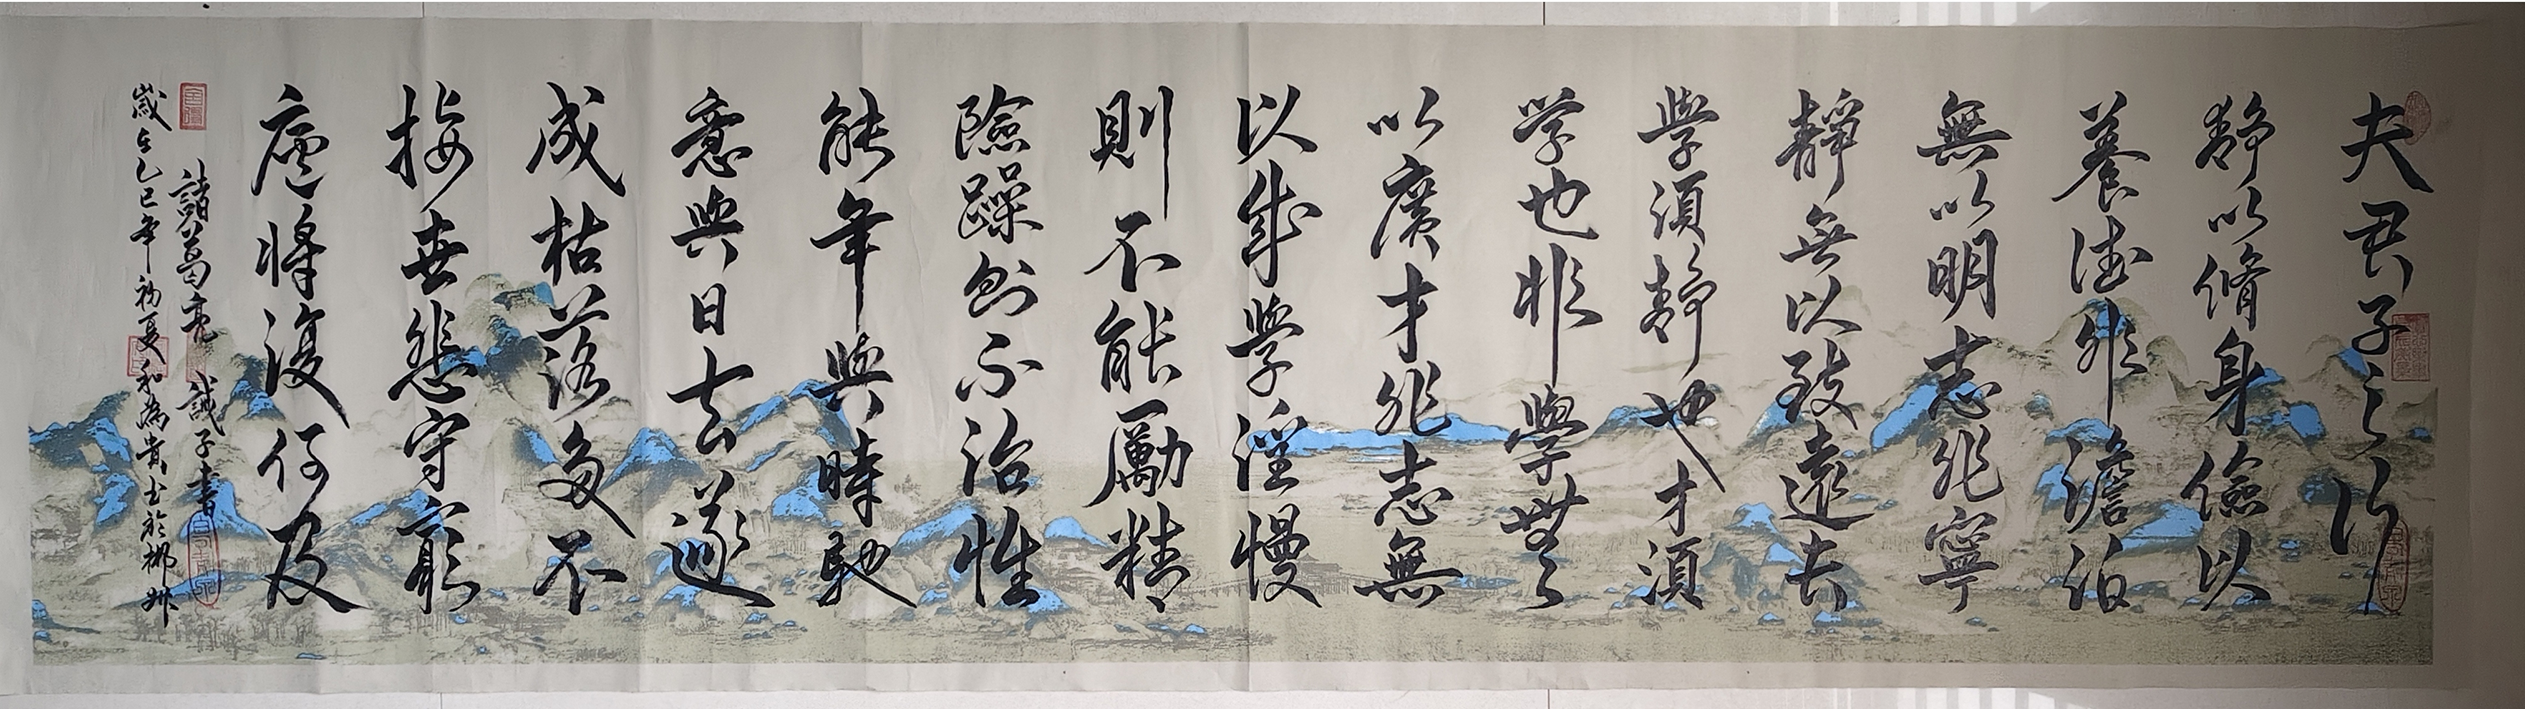 夫君子之行
靜以脩身儉以
養德非澹泊
無以明志非寧
靜無以致遠夫
學須靜也才須
学也非學無
以廣才非志無
以成學淫慢
則不能勵精
險躁則不治性
能年與時馳
意與日去遂
成枯落多不
接世悲守窮
廬將復何及
諸葛亮 誡子書
歲在乙巳年初夏和為貴書於州